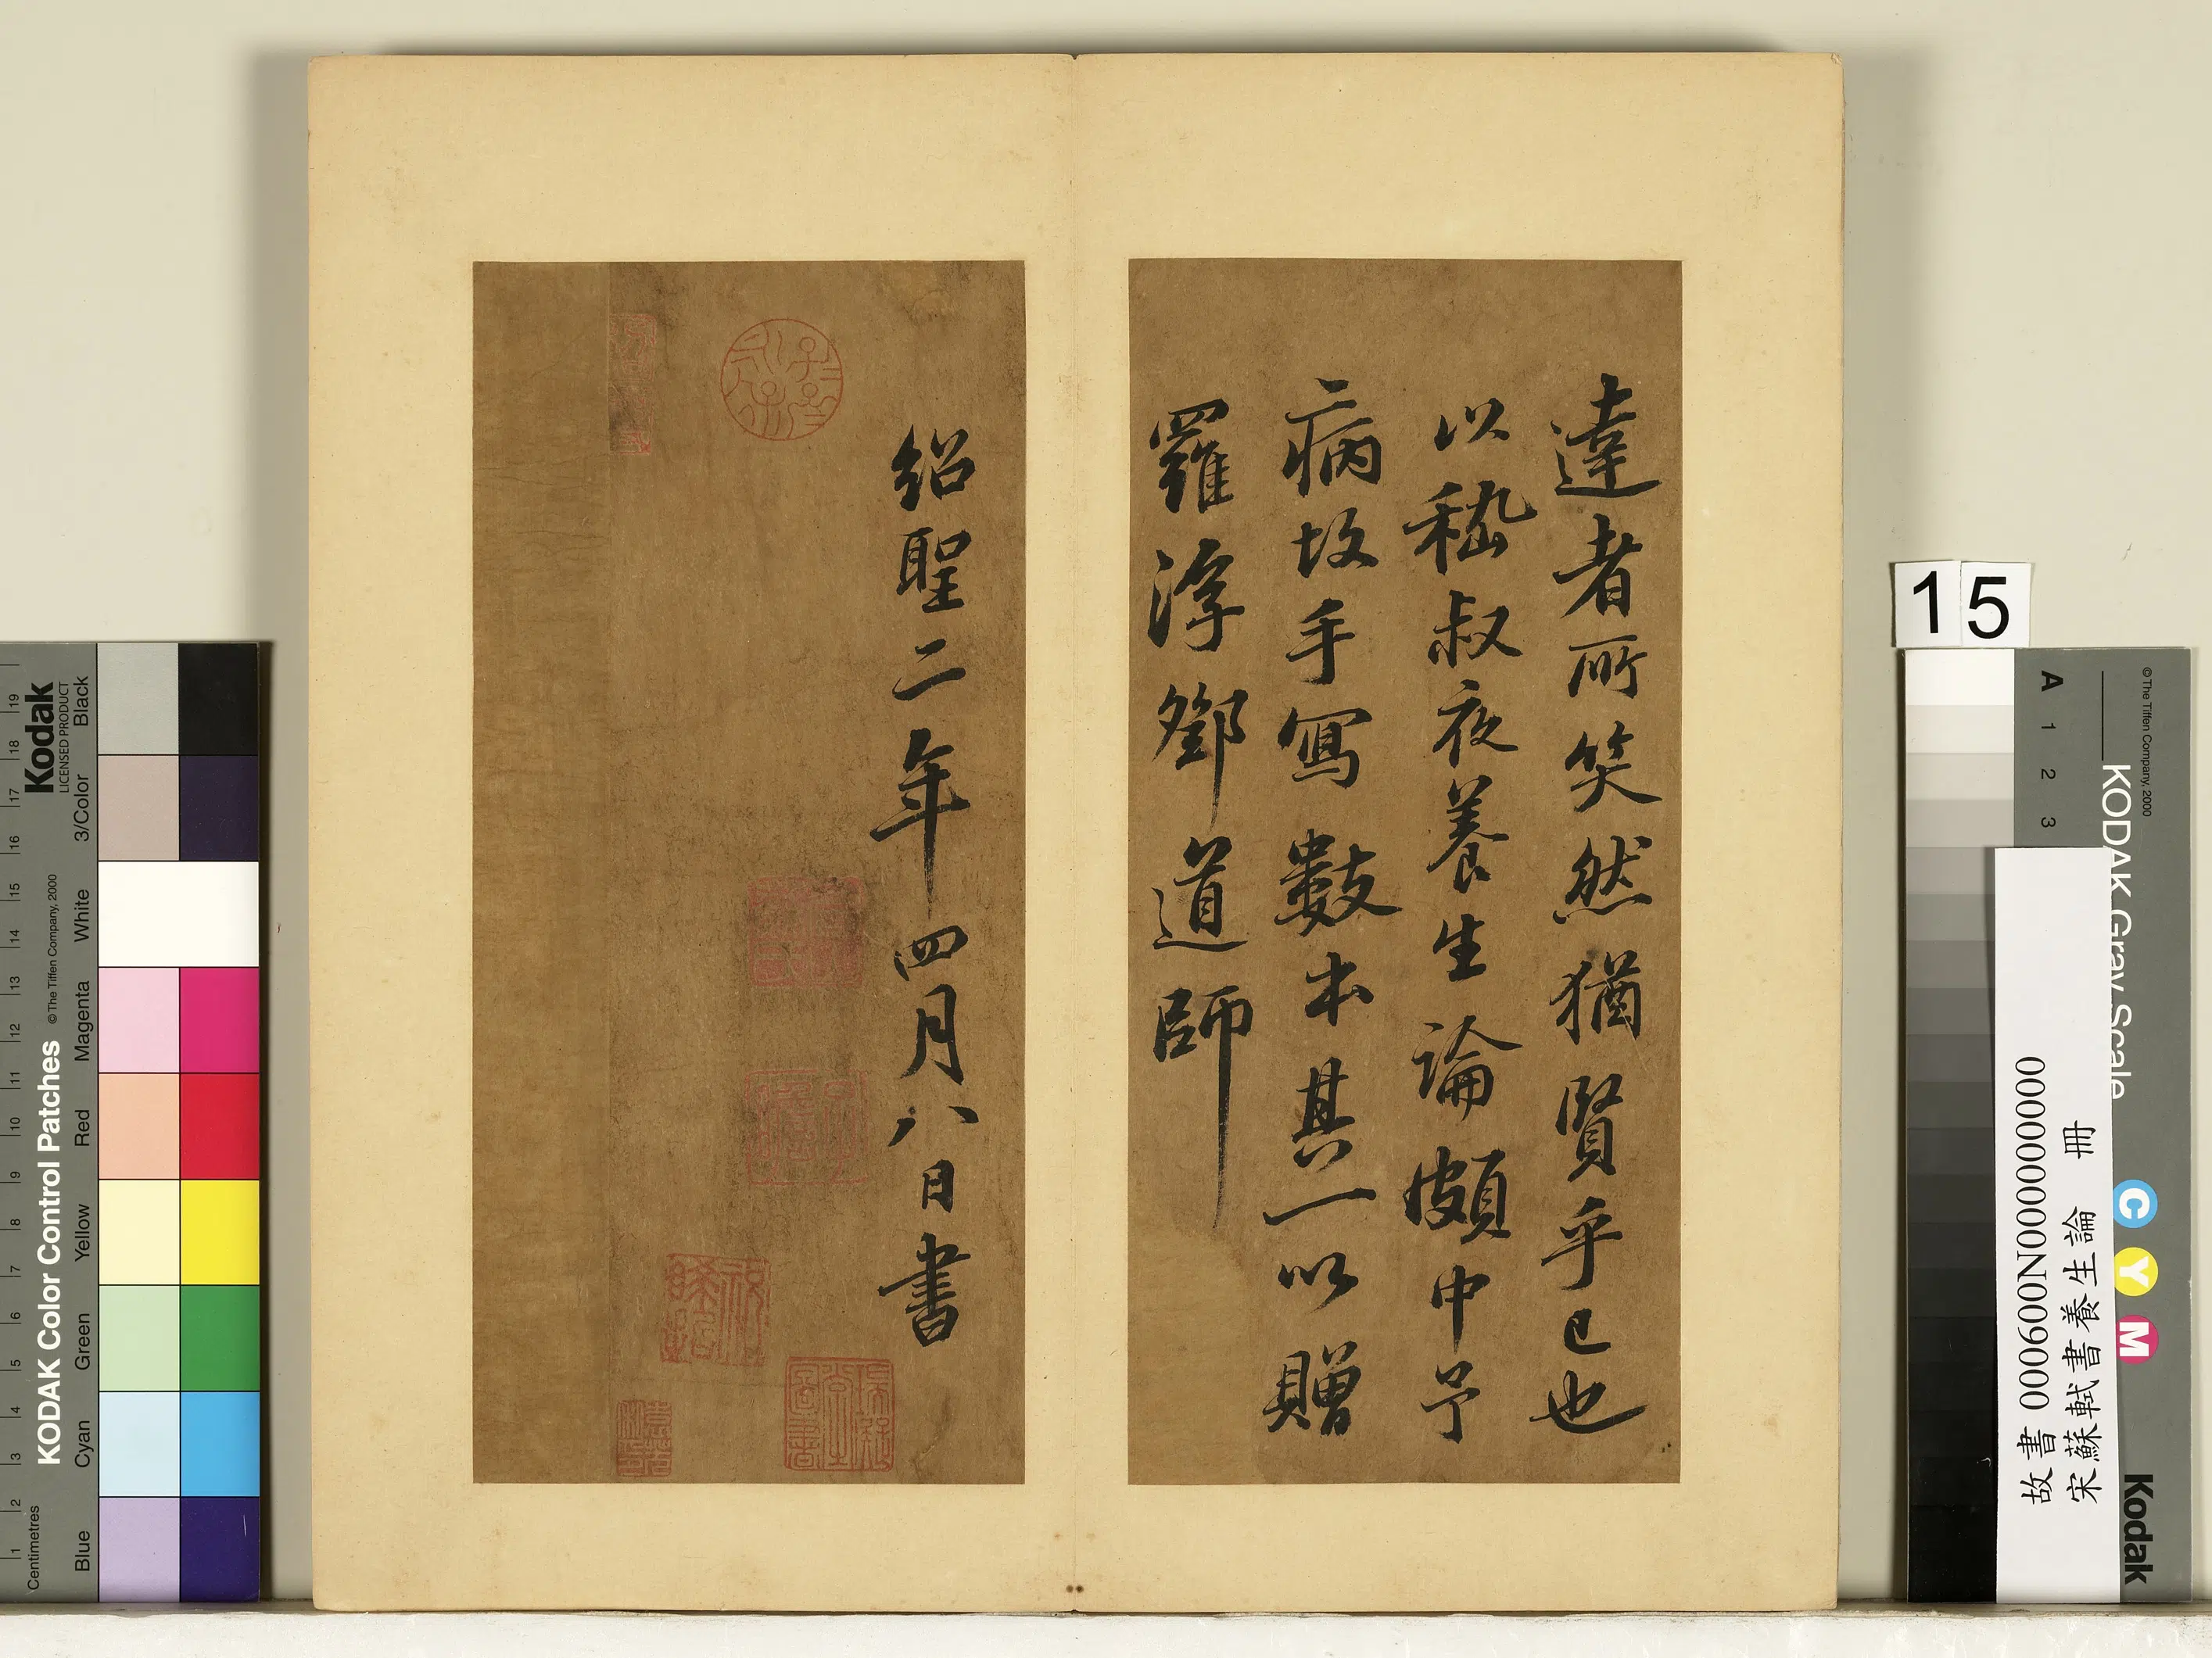 達者所笑然猶賢乎已也
以嵇叔夜養生論頗中予
病故手寫數本其一以贈
羅浮鄧道師
紹聖二年四月八日書
15
故書 000600N000000000
宋蘇軾書養生論 冊
KODAK Color Control Patches
© The Tiffen Company, 2000
Kodak
LICENSED PRODUCT
Centimetres
1 2 3 4 5 6 7 8 9 10 11 12 13 14 15 16 17 18 19
Blue
Cyan
Green
Yellow
Red
Magenta
White
3/Color
Black
© The Tiffen Company, 2000
KODAK Gray Scale
A 1 2 3
C Y M
Kodak